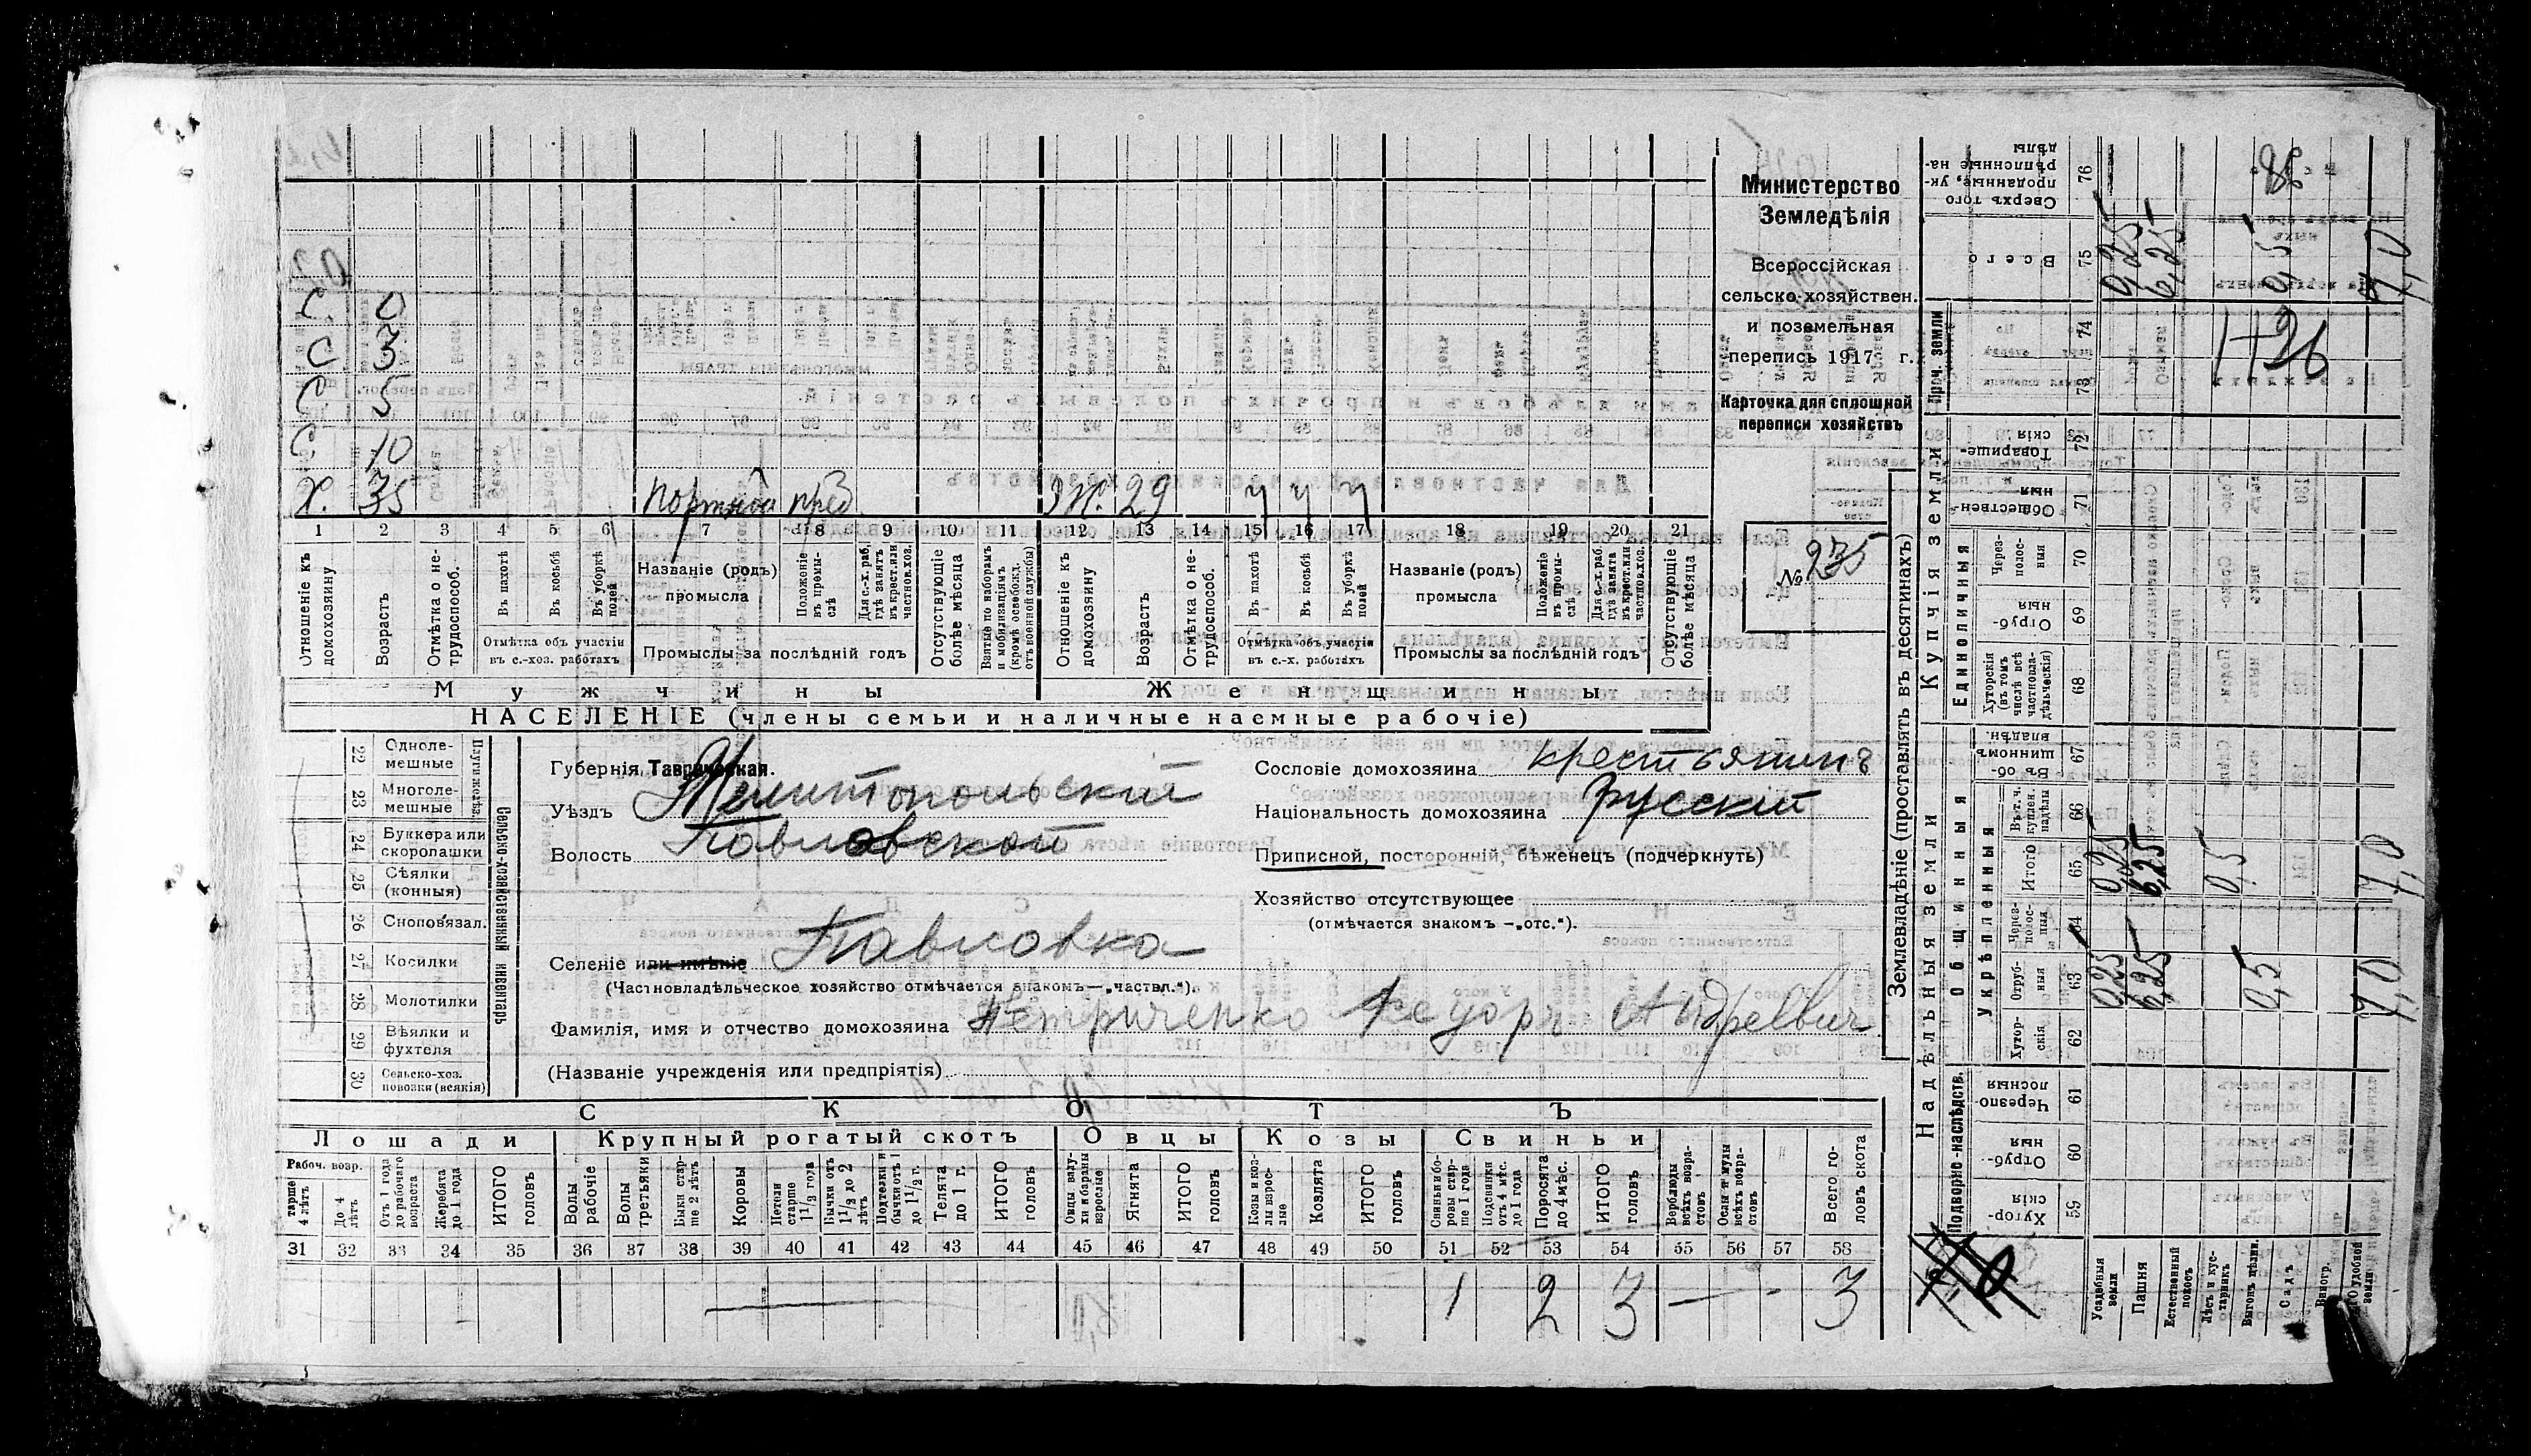 С. 0
С 3
С. 5
С 10
Х. 35 портной пред. Ж. 29 ч ч ч
1 2 3 4 5 6 7 8 9 10 11 12 13 14 15 16 17 18 19 20 21
Отношеніе къ домохозяину
Возрастъ
Отмѣтка о не-трудоспособ.
Въ пахотѣ
Въ косьбѣ
Въ уборкѣ полей
Отмѣтка объ участіи
въ с.-хоз. работахъ
Названіе (родъ)
промысла
Положеніе въ промы-слѣ
Для с.-х. раб. гдѣ занятъ въ крест. или частнов. хоз.
Промыслы за послѣдній годъ
Отсутствующіе болѣе мѣсяца
Взятые по наборамъ и мобилизаціямъ (кромѣ освобожд. отъ военной службы)
Отношеніе къ домохозяину
Возрастъ
Отмѣтка о не-трудоспособ.
Въ пахотѣ
Въ косьбѣ
Въ уборкѣ полей
Отмѣтка объ участіи
въ с.-х. работахъ
Названіе (родъ)
промысла
Положеніе въ промы-слѣ
Для с.-х. раб. гдѣ занята въ крест. или частнов. хоз.
Промыслы за послѣдній годъ
Отсутствующіе болѣе мѣсяца
Мужчины Женщины
НАСЕЛЕНІЕ (члены семьи и наличные наемные рабочіе)
Министерство
Земледѣлія
Всероссійская
сельско-хозяйствен.
и поземельная
перепись 1917 г.
Карточка для сплошной
переписи хозяйствъ
№ 235
22 Одноле-мешные
23 Многоле-мешные
24 Буккера или скоропашки
25 Сѣялки (конныя)
26 Сноповязал.
27 Косилки
28 Молотилки
29 Вѣялки и фухтеля
30 Сельско-хоз. повозки (всякія)
Сельско-хозяйственный инвентарь
Губернія Таврическая.
Уѣздъ Мелитопольскій
Волость Павловской
Селеніе или имѣніе Павловка
(Частновладѣльческое хозяйство отмѣчается знакомъ—„частвл.“).
Фамилія, имя и отчество домохозяина Петриченко Федоръ Андреевич
(Названіе учрежденія или предпріятія)
Сословіе домохозяина крестьянинъ
Національность домохозяина Русскій
Приписной, посторонній, бѣженецъ (подчеркнуть)
Хозяйство отсутствующее
(отмѣчается знакомъ —„отс.“).
СКОТЪ
Лошади Крупный рогатый скотъ Овцы Козы Свиньи
Рабоч. возр.
До 4 лѣтъ
Отъ 1 года до рабочаго возраста
Жеребята до 1 года
ИТОГО головъ
Волы рабочіе
Волы третьяки
Быки стар-ше 2 лѣтъ
Коровы
Нетели старше 1 1/2 года
Бычки отъ 1 1/2 до 2 лѣтъ
Телята до 1 г.
ИТОГО головъ
Ягнята
ИТОГО головъ
Козы и коз-лы взрос-лые
Козлята
ИТОГО головъ
Свиньи и бо-ровы стар-ше 1 года
Подсвинки отъ 4 мѣс. до 1 года
Поросята до 4 мѣс.
ИТОГО головъ
Верблюды всѣхъ возра-стовъ
Ослы и мулы всѣхъ возра-стовъ
Всего го-ловъ скота
31 32 33 34 35 36 37 38 39 40 41 42 43 44 45 46 47 48 49 50 51 52 53 54 55 56 57 58
1 2 3 — 3
Землевладѣніе (проставлять въ десятинахъ)
Надѣльныя земли Купчія земли Проч. земли
Подворно-наслѣдств. Общинныя Единоличныя
Укрѣпленныя
Хутор-скія 59
Отруб-ныя 60
Черезпо-лосныя 61
Хутор-скія 62
Отруб-ныя 63 0,25 6,25 0,5 7,0
Черезполос-ныя 64
Итого 65 0,25 6,25 0,5 7,0
Въ т. ч. куплен. надѣлы 66
Въ об-щинномъ владѣн. 67
Хуторскія (въ томъ числѣ всѣ частновла-дѣльческія) 68
Отруб-ныя 69
Через-полос-ныя 70
Обществен-ныя 71
Товарище-скія 72
73
74
Всего 75 0,25 6,25 0,5 7,0
Сверхъ того проданные, ук-рѣпленные на-дѣлы 76
Усадебныя земли
Пашня
Естественный покосъ
Лѣсъ и кус-тарникъ
Садъ
Виногр.